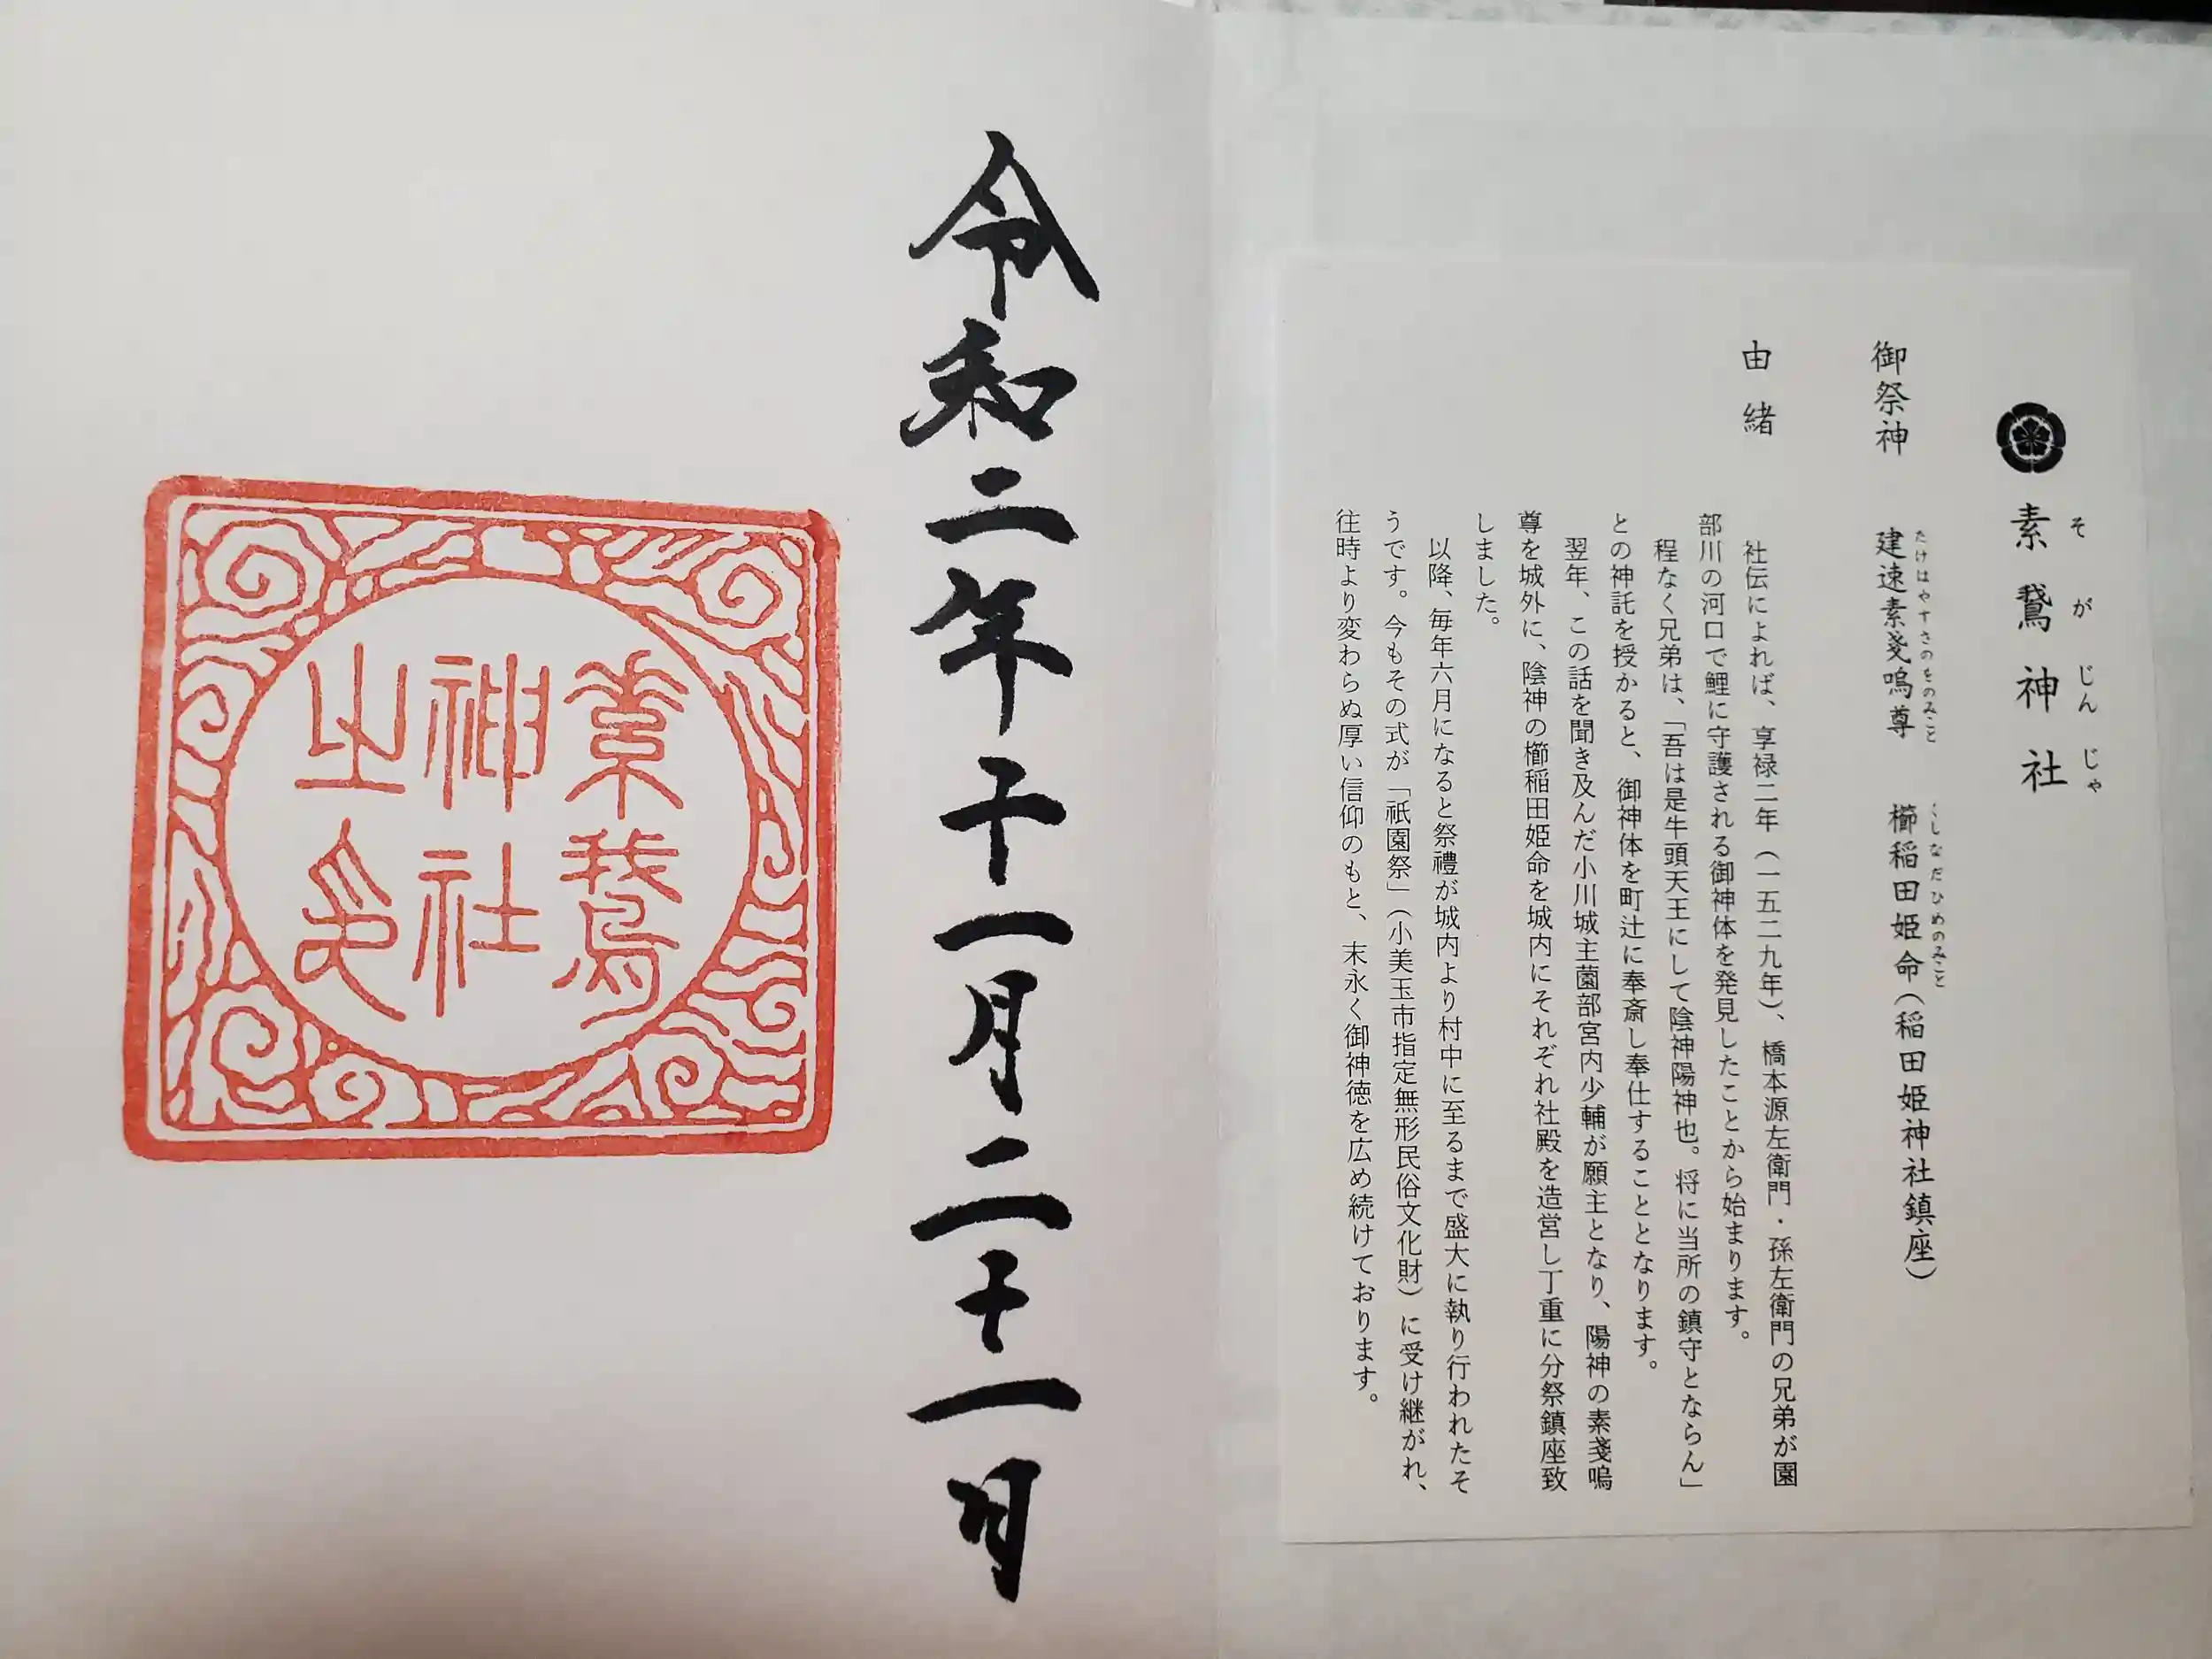 素鵞神社
そがじんじゃ
御祭神 建速素戔嗚尊 櫛稲田姫命(稲田姫神社鎮座)
たけはやすさのをのみこと くしなだひめのみこと
由緒
社伝によれば、享禄二年(一五二九年)、橋本源左衛門・孫左衛門の兄弟が園
部川の河口で鯉に守護される御神体を発見したことから始まります。
程なく兄弟は、「吾は是牛頭天王にして陰神陽神也。将に当所の鎮守とならん」
との神託を授かると、御神体を町辻に奉斎し奉仕することとなります。
翌年、この話を聞き及んだ小川城主薗部宮内少輔が願主となり、陽神の素戔嗚
尊を城外に、陰神の櫛稲田姫命を城内にそれぞれ社殿を造営し丁重に分祭鎮座致
しました。
以降、毎年六月になると祭禮が城内より村中に至るまで盛大に執り行われたそ
うです。今もその式が「祇園祭」(小美玉市指定無形民俗文化財)に受け継がれ、
往時より変わらぬ厚い信仰のもと、末永く御神徳を広め続けております。
令和二年十一月二十一日
素鵞
神社
之印